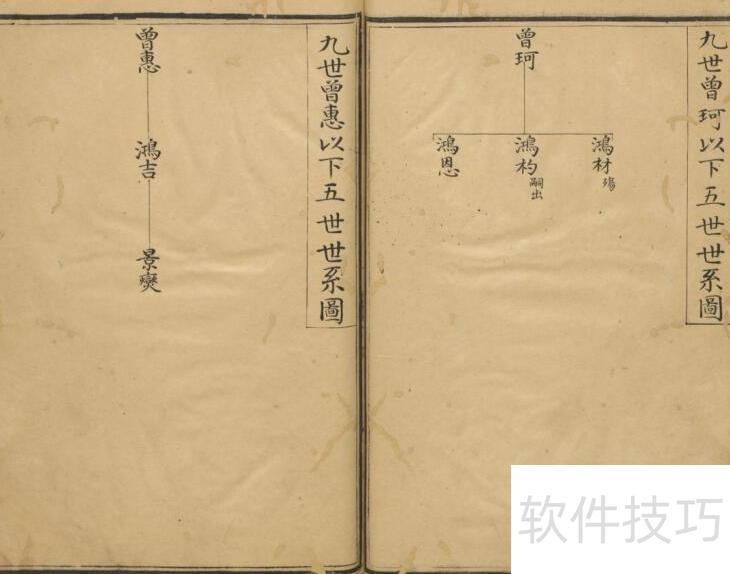 九世曾珂以下五世世系圖
曾珂
鴻材
殤
鴻杓
嗣出
鴻恩
九世曾惠以下五世世系圖
曾惠
鴻吉
景爕
软件技巧